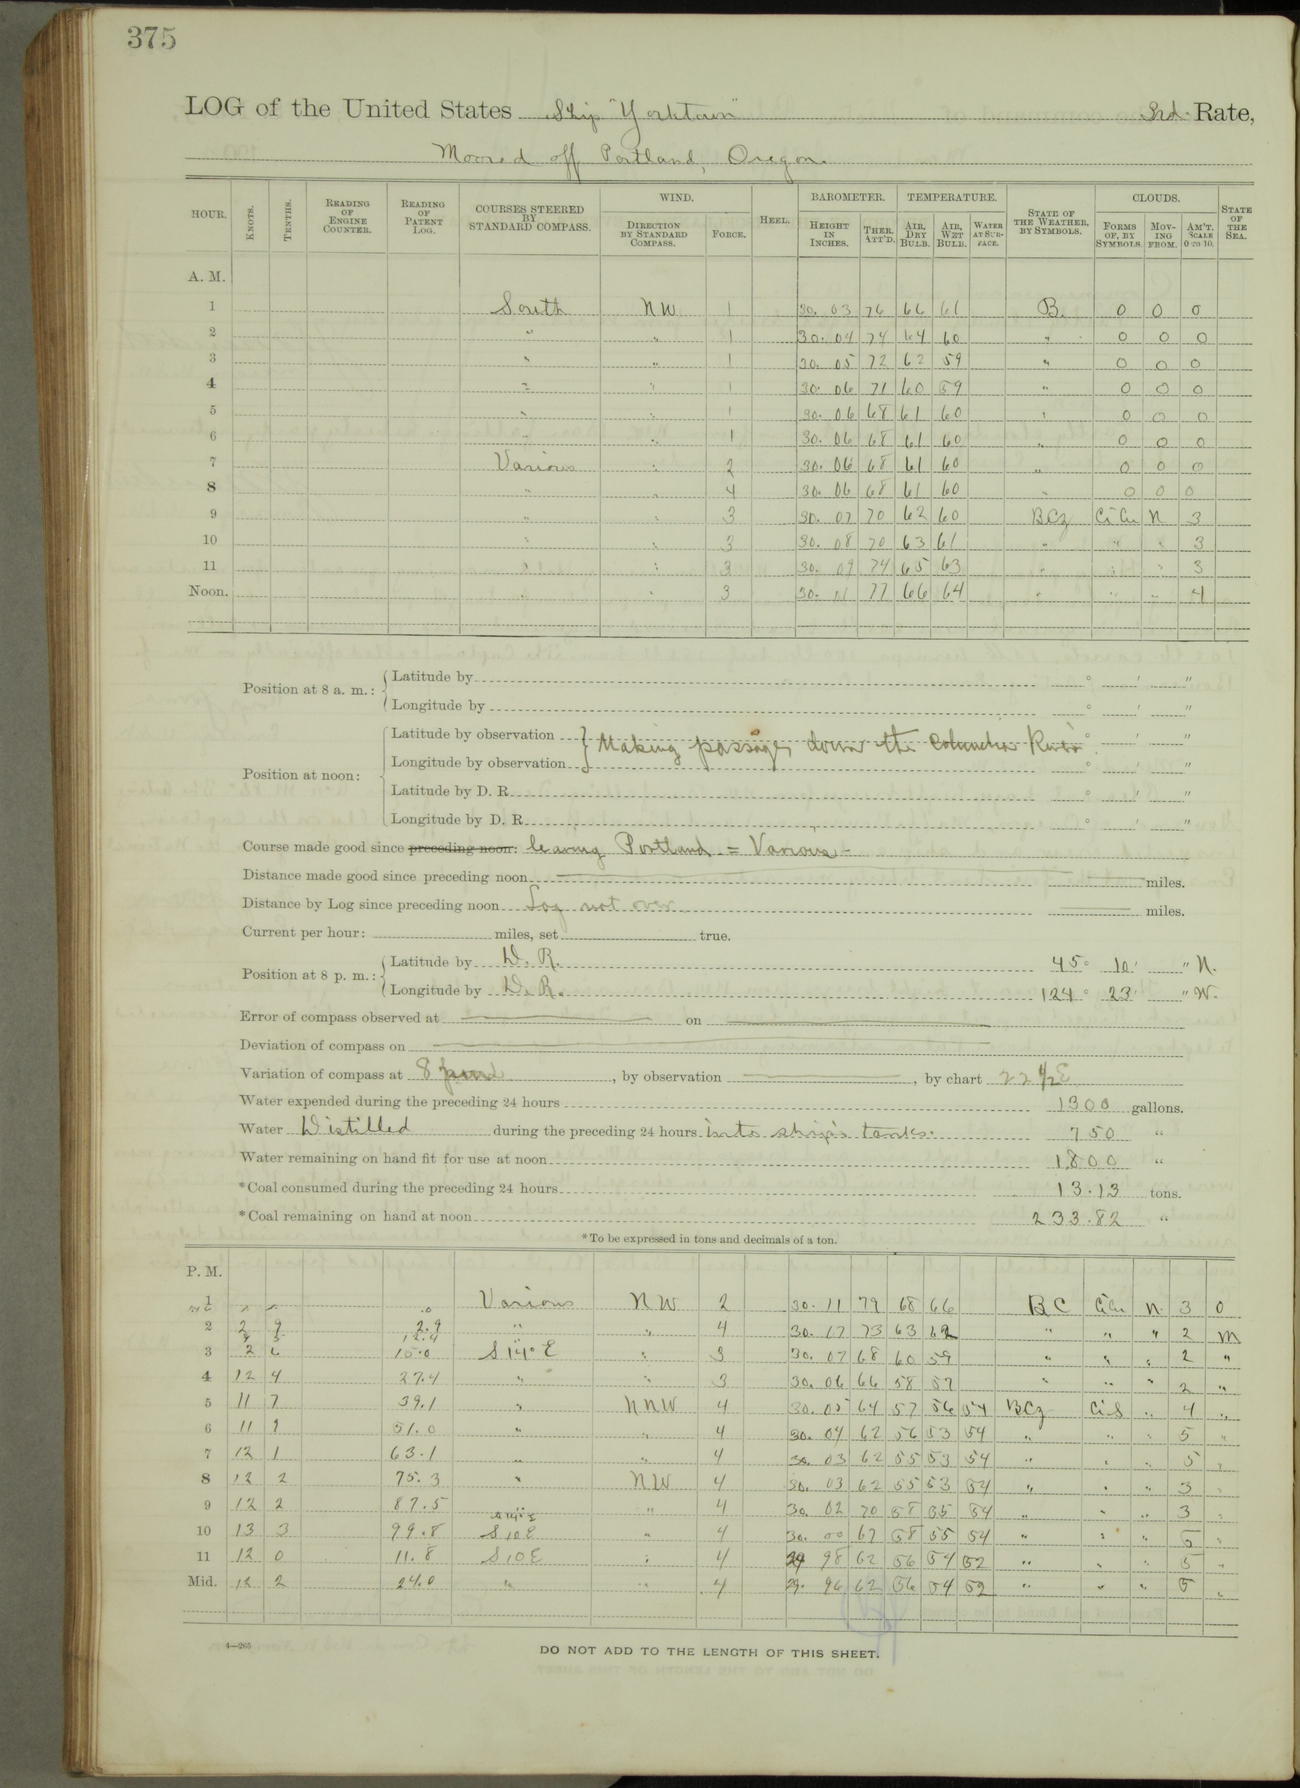 375
LOG of the United States Ship "Yorktown" 3rd. Rate,
Moored off Portland, Oregon.
HOUR. KNOTS. TENTHS. READING OF ENGINE COUNTER. READING OF PATENT LOG. COURSES STEERED BY STANDARD COMPASS. WIND. DIRECTION BY STANDARD COMPASS. FORCE. HEEL. BAROMETER. HEIGHT IN INCHES. THER. ATT'D. TEMPERATURE. AIR, DRY BULB. AIR, WET BULB. WATER AT SURFACE. STATE OF THE WEATHER, BY SYMBOLS. CLOUDS. FORMS OF, BY SYMBOLS. MOVING FROM. AM'T. SCALE 0 TO 10. STATE OF THE SEA.
A. M.
1 South NW 1 30. 03 76 66 61 B. 0 0 0
2 " " 1 30. 04 74 64 60 " 0 0 0
3 " " 1 30. 05 72 62 59 " 0 0 0
4 " " 1 30. 06 71 60 59 " 0 0 0
5 " " 1 30. 06 68 61 60 " 0 0 0
6 " " 1 30. 06 68 61 60 " 0 0 0
7 Various " 2 30. 06 68 61 60 " 0 0 0
8 " " 4 30. 06 68 61 60 " 0 0 0
9 " " 3 30. 07 70 62 60 BCz CiCu N 3
10 " " 3 30. 08 70 63 61 " " " 3
11 " " 3 30. 09 74 65 63 " " " 3
Noon. " " 3 30. 11 77 66 64 " " " 4
Position at 8 a. m.: Latitude by ° ' "
Longitude by ° ' "
Position at noon: Latitude by observation } Making passage down the Columbia River. ° ' "
Longitude by observation ° ' "
Latitude by D. R. ° ' "
Longitude by D. R. ° ' "
Course made good since preceding noon: leaving Portland = Various -
Distance made good since preceding noon miles.
Distance by Log since preceding noon Log not over miles.
Current per hour: miles, set true.
Position at 8 p. m.: Latitude by D. R. 45° 10' " N.
Longitude by D. R. 124° 23' " W.
Error of compass observed at on
Deviation of compass on
Variation of compass at 8 , by observation , by chart 22 1/2 E
Water expended during the preceding 24 hours 1300 gallons.
Water Distilled during the preceding 24 hours into ship's tanks. 750 "
Water remaining on hand fit for use at noon 1800 "
*Coal consumed during the preceding 24 hours 13.13 tons.
*Coal remaining on hand at noon 233.82 "
*To be expressed in tons and decimals of a ton.
P. M.
1 .0 Various NW 2 30. 11 79 68 66 BC CiCu N. 3 0
2 2 9 2.9 " " 4 30. 73 63 " " " 2 M
3 2 6 15.0 S14°E " 3 30. 07 68 60 59 " " " 2 "
4 12 4 27.4 " " 3 30. 06 66 58 57 " " " 2 "
5 11 7 39.1 " NNW 4 30. 05 64 57 56 54 BCz CiS " 4 "
6 11 9 51.0 " " 4 30. 04 62 56 53 54 " " " 5 "
7 12 1 63.1 " " 4 30. 03 62 55 53 54 " " " 5 "
8 12 2 75.3 " NW 4 30. 03 62 55 53 54 " " " 3 "
9 12 2 87.5 " " 4 30. 02 70 58 55 54 " " " 3 "
10 13 3 99.8 S10E " 4 30. 00 67 58 55 54 " " " 5 "
11 12 0 11.8 S10E " 4 29 98 62 56 54 52 " " " 5 "
Mid. 12 2 24.0 " " 4 29. 96 62 56 54 52 " " " 5 "
4—265
DO NOT ADD TO THE LENGTH OF THIS SHEET.